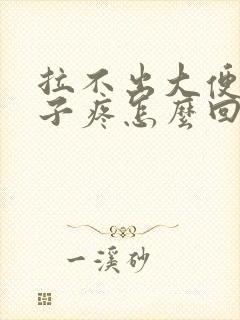 拉不出大便
子疼怎麼回
一溪砂